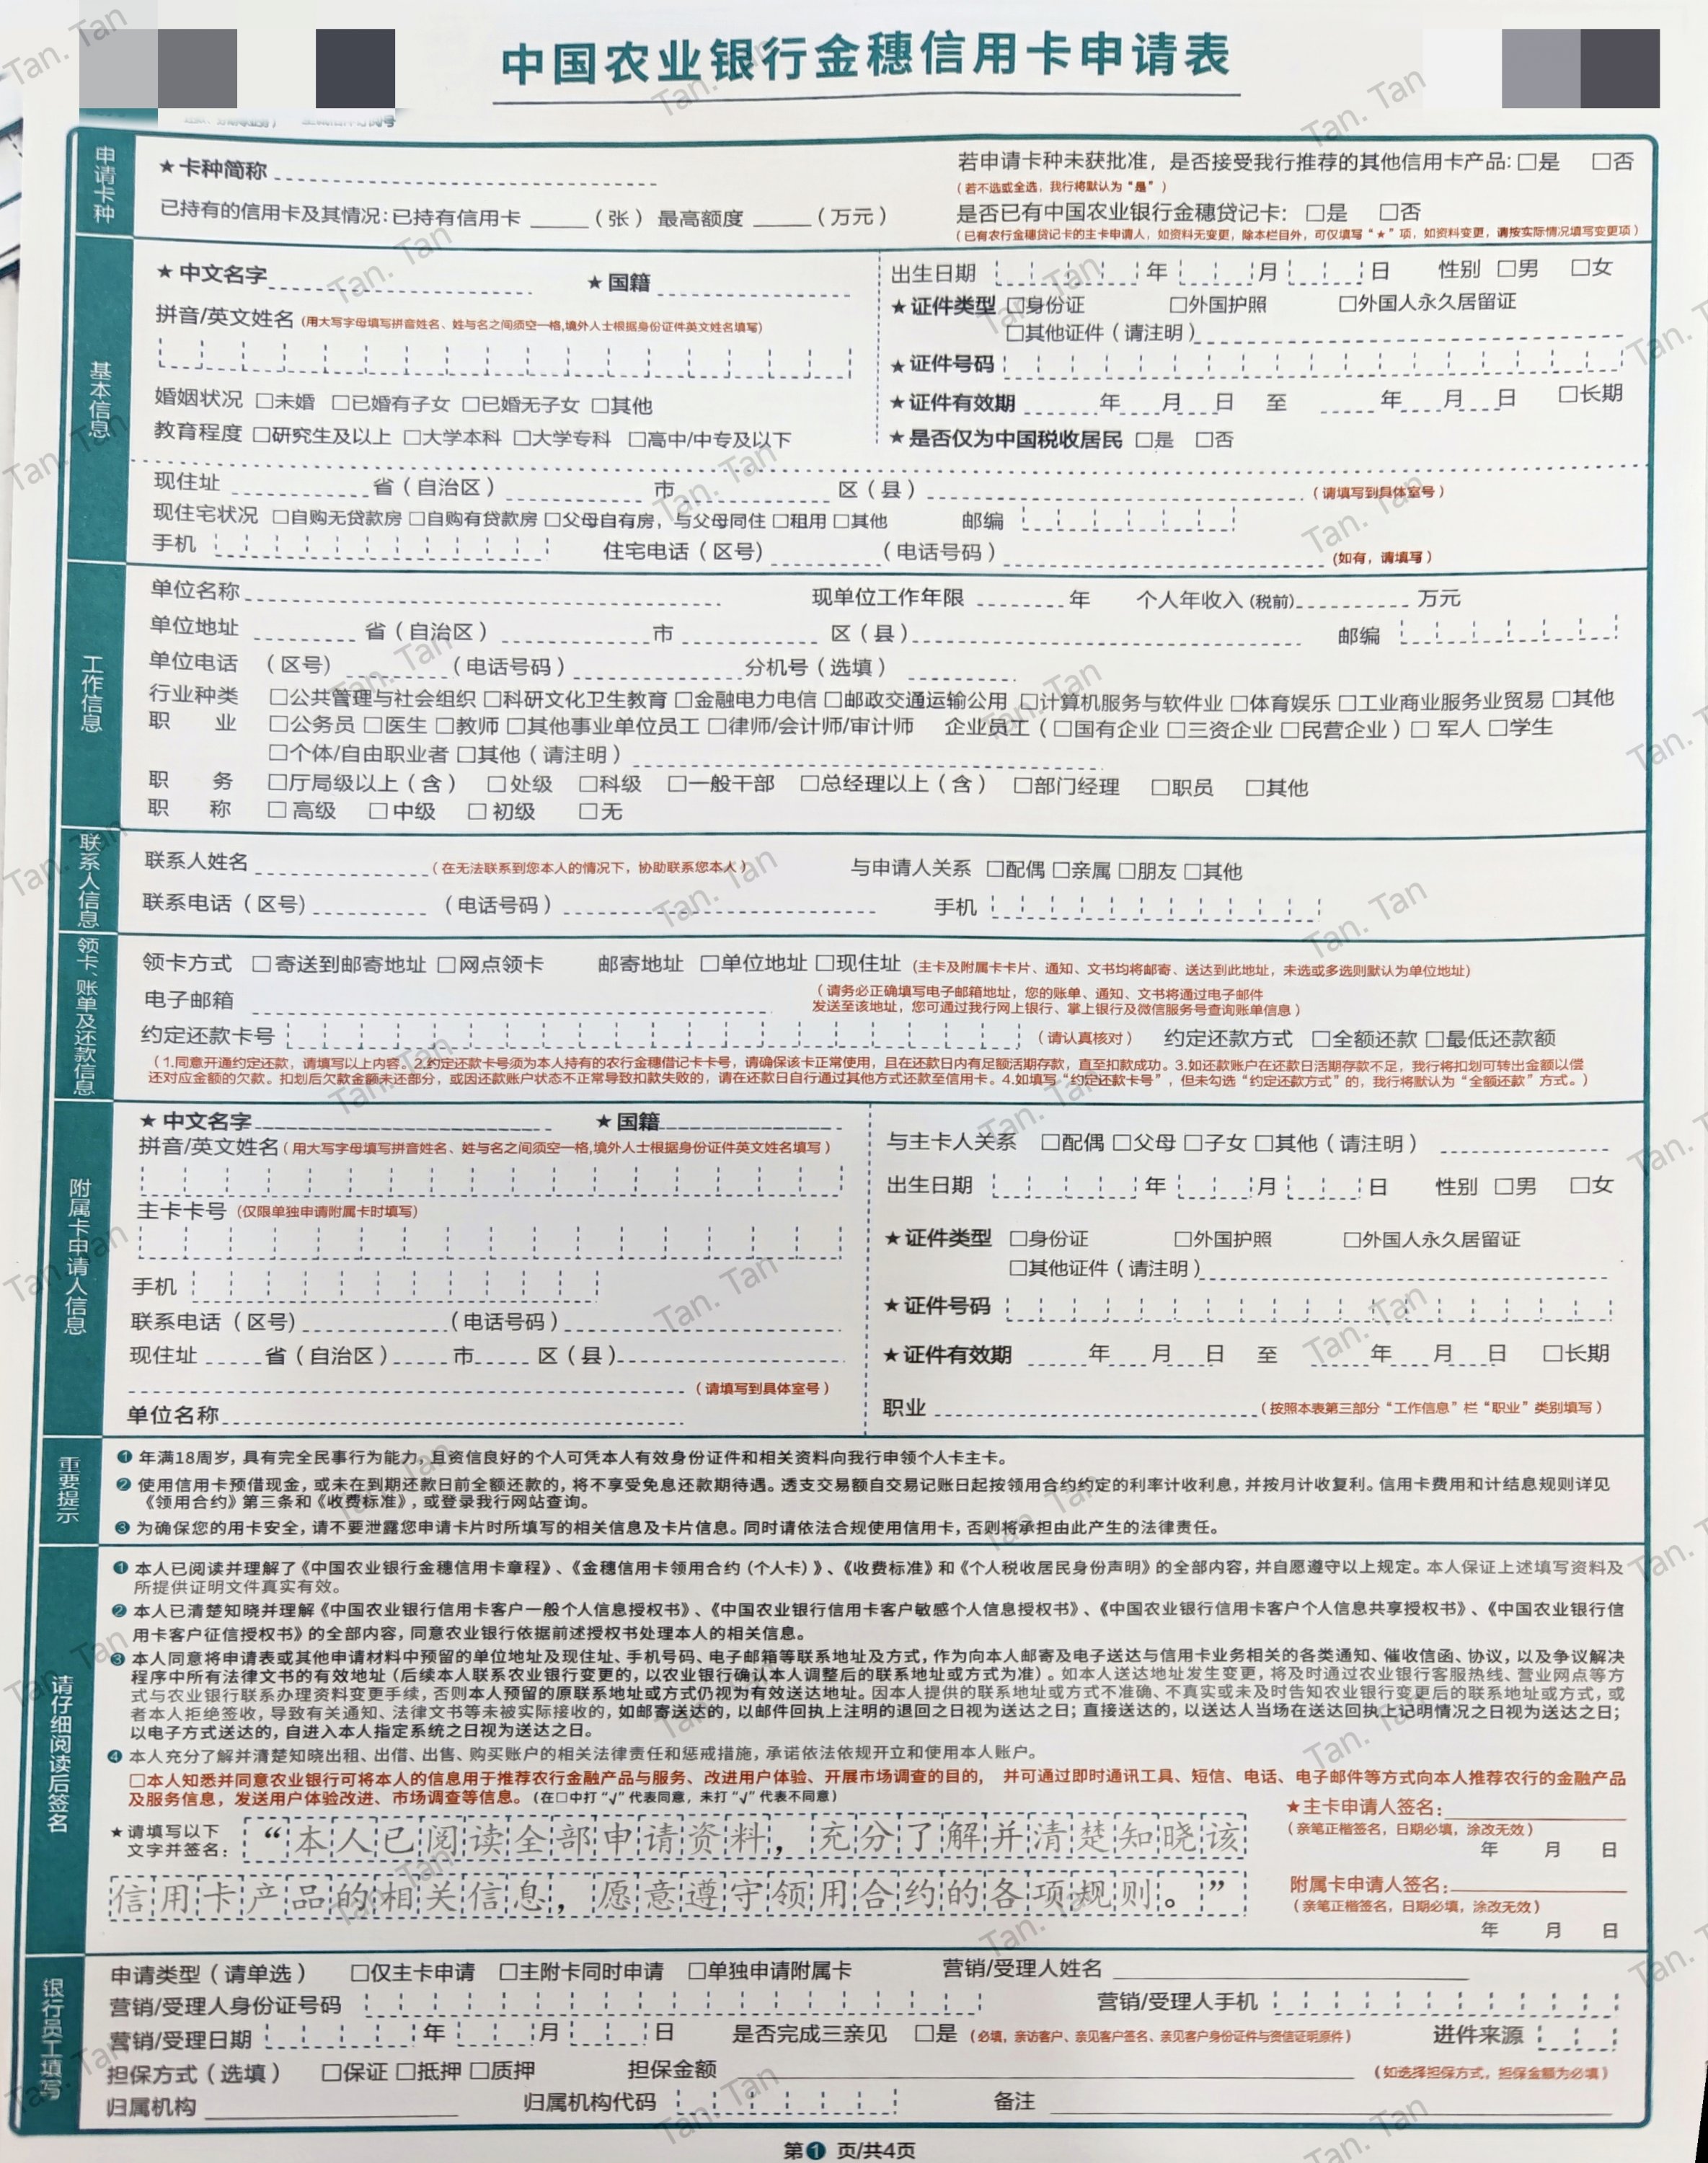 中国农业银行金穗信用卡申请表
申请卡种
★卡种简称
若申请卡种未获批准，是否接受我行推荐的其他信用卡产品：□是 □否
（若不选或全选，我行将默认为“是”）
已持有的信用卡及其情况：已持有信用卡______（张）最高额度______（万元）
是否已有中国农业银行金穗贷记卡：□是 □否
（已有农行金穗贷记卡的主卡申请人，如资料无变更，除本栏目外，可仅填写“★”项，如资料变更，请按实际情况填写变更项）
基本信息
★中文名字 ★国籍
出生日期 年 月 日 性别 □男 □女
拼音/英文姓名（用大写字母填写拼音姓名、姓与名之间须空一格,境外人士根据身份证件英文姓名填写）
★证件类型 □身份证 □外国护照 □外国人永久居留证
□其他证件（请注明）
★证件号码
婚姻状况 □未婚 □已婚有子女 □已婚无子女 □其他
★证件有效期 年 月 日 至 年 月 日 □长期
教育程度 □研究生及以上 □大学本科 □大学专科 □高中/中专及以下
★是否仅为中国税收居民 □是 □否
现住址 省（自治区） 市 区（县） （请填写到具体室号）
现住宅状况 □自购无贷款房 □自购有贷款房 □父母自有房，与父母同住 □租用 □其他 邮编
手机 住宅电话（区号） （电话号码） （如有，请填写）
工作信息
单位名称 现单位工作年限 年 个人年收入（税前） 万元
单位地址 省（自治区） 市 区（县） 邮编
单位电话 （区号） （电话号码） 分机号（选填）
行业种类 □公共管理与社会组织 □科研文化卫生教育 □金融电力电信 □邮政交通运输公用 □计算机服务与软件业 □体育娱乐 □工业商业服务业贸易 □其他
职 业 □公务员 □医生 □教师 □其他事业单位员工 □律师/会计师/审计师 企业员工（□国有企业 □三资企业 □民营企业）□ 军人 □学生
□个体/自由职业者 □其他（请注明）
职 务 □厅局级以上（含） □处级 □科级 □一般干部 □总经理以上（含） □部门经理 □职员 □其他
职 称 □ 高级 □ 中级 □ 初级 □无
联系人信息
联系人姓名 （在无法联系到您本人的情况下，协助联系您本人） 与申请人关系 □配偶 □亲属 □朋友 □其他
联系电话（区号） （电话号码） 手机
领卡、账单及还款信息
领卡方式 □寄送到邮寄地址 □网点领卡 邮寄地址 □单位地址 □现住址（主卡及附属卡卡片、通知、文书均将邮寄、送达到此地址，未选或多选则默认为单位地址）
电子邮箱 （请务必正确填写电子邮箱地址，您的账单、通知、文书将通过电子邮件
发送至该地址，您可通过我行网上银行、掌上银行及微信服务号查询账单信息）
约定还款卡号 （请认真核对） 约定还款方式 □全额还款 □最低还款额
（1.同意开通约定还款，请填写以上内容。2.约定还款卡号须为本人持有的农行金穗借记卡卡号，请确保该卡正常使用，且在还款日内有足额活期存款，直至扣款成功。3.如还款账户在还款日活期存款不足，我行将扣划可转出金额以偿
还对应金额的欠款。扣划后欠款金额未还部分，或因还款账户状态不正常导致扣款失败的，请在还款日自行通过其他方式还款至信用卡。4.如填写“约定还款卡号”，但未勾选“约定还款方式”的，我行将默认为“全额还款”方式。）
附属卡申请人信息
★中文名字 ★国籍
拼音/英文姓名（用大写字母填写拼音姓名、姓与名之间须空一格,境外人士根据身份证件英文姓名填写）
与主卡人关系 □配偶 □父母 □子女 □其他（请注明）
出生日期 年 月 日 性别 □男 □女
主卡卡号（仅限单独申请附属卡时填写）
★证件类型 □身份证 □外国护照 □外国人永久居留证
□其他证件（请注明）
手机
★证件号码
联系电话（区号） （电话号码）
现住址 省（自治区） 市 区（县）
★证件有效期 年 月 日 至 年 月 日 □长期
（请填写到具体室号）
单位名称
职业 （按照本表第三部分“工作信息”栏“职业”类别填写）
重要提示
❶ 年满18周岁，具有完全民事行为能力，且资信良好的个人可凭本人有效身份证件和相关资料向我行申领个人卡主卡。
❷ 使用信用卡预借现金，或未在到期还款日前全额还款的，将不享受免息还款期待遇。透支交易额自交易记账日起按领用合约约定的利率计收利息，并按月计收复利。信用卡费用和计结息规则详见
《领用合约》第三条和《收费标准》，或登录我行网站查询。
❸ 为确保您的用卡安全，请不要泄露您申请卡片时所填写的相关信息及卡片信息。同时请依法合规使用信用卡，否则将承担由此产生的法律责任。
请仔细阅读后签名
❶ 本人已阅读并理解了《中国农业银行金穗信用卡章程》、《金穗信用卡领用合约（个人卡）》、《收费标准》和《个人税收居民身份声明》的全部内容，并自愿遵守以上规定。本人保证上述填写资料及
所提供证明文件真实有效。
❷ 本人已清楚知晓并理解《中国农业银行信用卡客户一般个人信息授权书》、《中国农业银行信用卡客户敏感个人信息授权书》、《中国农业银行信用卡客户个人信息共享授权书》、《中国农业银行信
用卡客户征信授权书》的全部内容，同意农业银行依据前述授权书处理本人的相关信息。
❸ 本人同意将申请表或其他申请材料中预留的单位地址及现住址、手机号码、电子邮箱等联系地址及方式，作为向本人邮寄及电子送达与信用卡业务相关的各类通知、催收信函、协议，以及争议解决
程序中所有法律文书的有效地址（后续本人联系农业银行变更的，以农业银行确认本人调整后的联系地址或方式为准）。如本人送达地址发生变更，将及时通过农业银行客服热线、营业网点等方
式与农业银行联系办理资料变更手续，否则本人预留的原联系地址或方式仍视为有效送达地址。因本人提供的联系地址或方式不准确、不真实或未及时告知农业银行变更后的联系地址或方式，或
者本人拒绝签收，导致有关通知、法律文书等未被实际接收的，如邮寄送达的，以邮件回执上注明的退回之日视为送达之日；直接送达的，以送达人当场在送达回执上记明情况之日视为送达之日；
以电子方式送达的，自进入本人指定系统之日视为送达之日。
❹ 本人充分了解并清楚知晓出租、出借、出售、购买账户的相关法律责任和惩戒措施，承诺依法依规开立和使用本人账户。
□本人知悉并同意农业银行可将本人的信息用于推荐农行金融产品与服务、改进用户体验、开展市场调查的目的， 并可通过即时通讯工具、短信、电话、电子邮件等方式向本人推荐农行的金融产品
及服务信息，发送用户体验改进、市场调查等信息。（在□中打“√”代表同意，未打“√”代表不同意）
★请填写以下
文字并签名：
“本人已阅读全部申请资料，充分了解并清楚知晓该
信用卡产品的相关信息，愿意遵守领用合约的各项规则。”
★主卡申请人签名：
（亲笔正楷签名，日期必填，涂改无效）
年 月 日
附属卡申请人签名：
（亲笔正楷签名，日期必填，涂改无效）
年 月 日
银行员工填写
申请类型（请单选） □仅主卡申请 □主附卡同时申请 □单独申请附属卡 营销/受理人姓名
营销/受理人身份证号码 营销/受理人手机
营销/受理日期 年 月 日 是否完成三亲见 □是（必填，亲访客户、亲见客户签名、亲见客户身份证件与资信证明原件） 进件来源
担保方式（选填） □保证 □抵押 □质押 担保金额 （如选择担保方式，担保金额为必填）
归属机构 归属机构代码 备注
第❶ 页/共4页
Tan. Tan